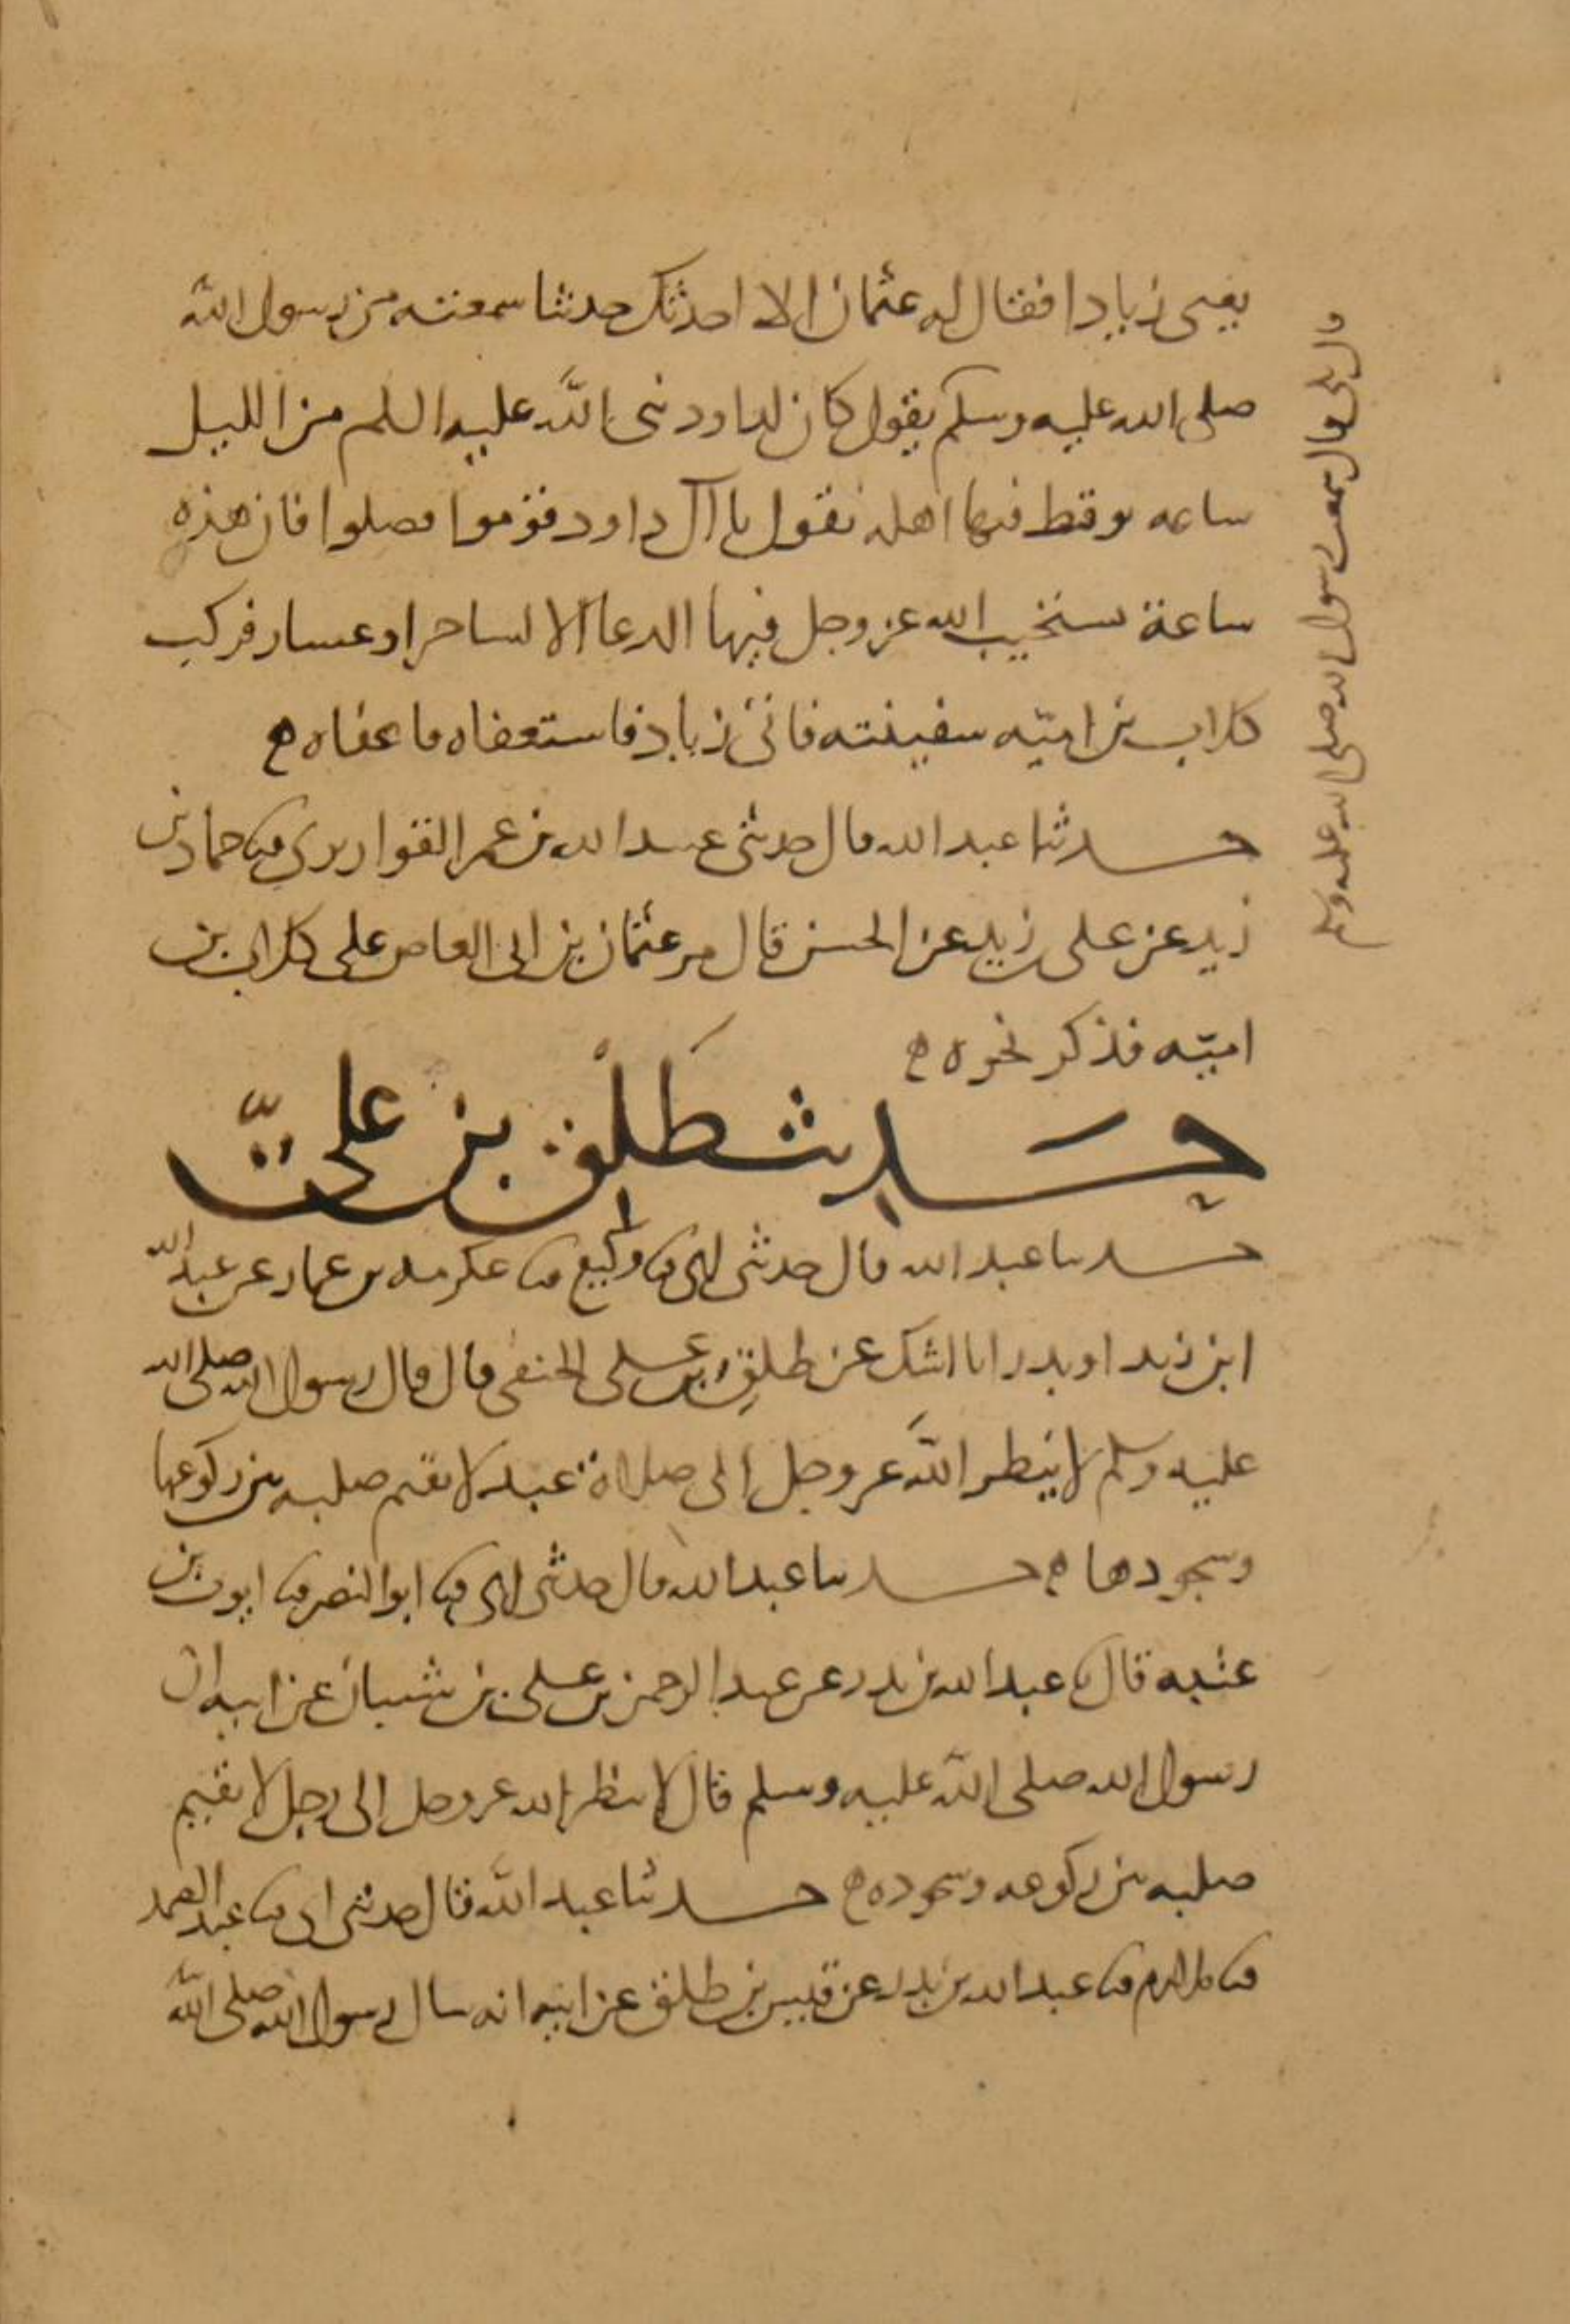 يعنى زيادا فقال له عثمان الا احدثك حديثا سمعته من رسول الله
صلى الله عليه وسلم يقول كان لداود نبى الله عليه السلم من الليل
ساعه يوقظ فيها اهله يقول يا آل داود قوموا فصلوا فان هذه
ساعة يستجيب الله عز وجل فيها الدعا الا لساحر او عشار فركب
كلاب بن اميّه سفينته فاتى زياد فاستعفاه فاعفاه ه
حدثنا عبد الله قال حدثنى عبيد الله بن عمر القواريرى ثنا حماد بن
زيد عن على زيد عن الحسن قال مر عثمان بن ابى العاص على كلاب بن
اميّه فذكر نحوه ه
حديث طَلْق بن علىّ
حدثنا عبد الله قال حدثنى ابى ثنا وكيع ثنا عكرمه بن عمار عن عبد الله
ابن زيد او بدر انا اشك عن طلق بن على الحنفى قال قال رسول الله صلى الله
عليه وسلم لا ينظر الله عز وجل الى صلاة عبد لا يقيم صلبه بين ركوعها
وسجودها ه حدثنا عبد الله قال حدثنى ابى ثنا ابو النضر ثنا ايوب بن
عتبه قال ثنا عبد الله بن بدر عن عبد الرحمن بن على بن شيبان عن ابيه ان
رسول الله صلى الله عليه وسلم قال لا ينظر الله عز وجل الى رجل لا يقيم
صلبه بين ركوعه وسجوده ه حدثنا عبد الله قال حدثنى ابى ثنا عبد الصمد
ثنا ملازم ثنا عبد الله بن بدر عن قيس بن طلق عن ابيه انه سال رسول الله صلى الله
قال بلى قال سمعت رسول الله صلى الله عليه وسلم